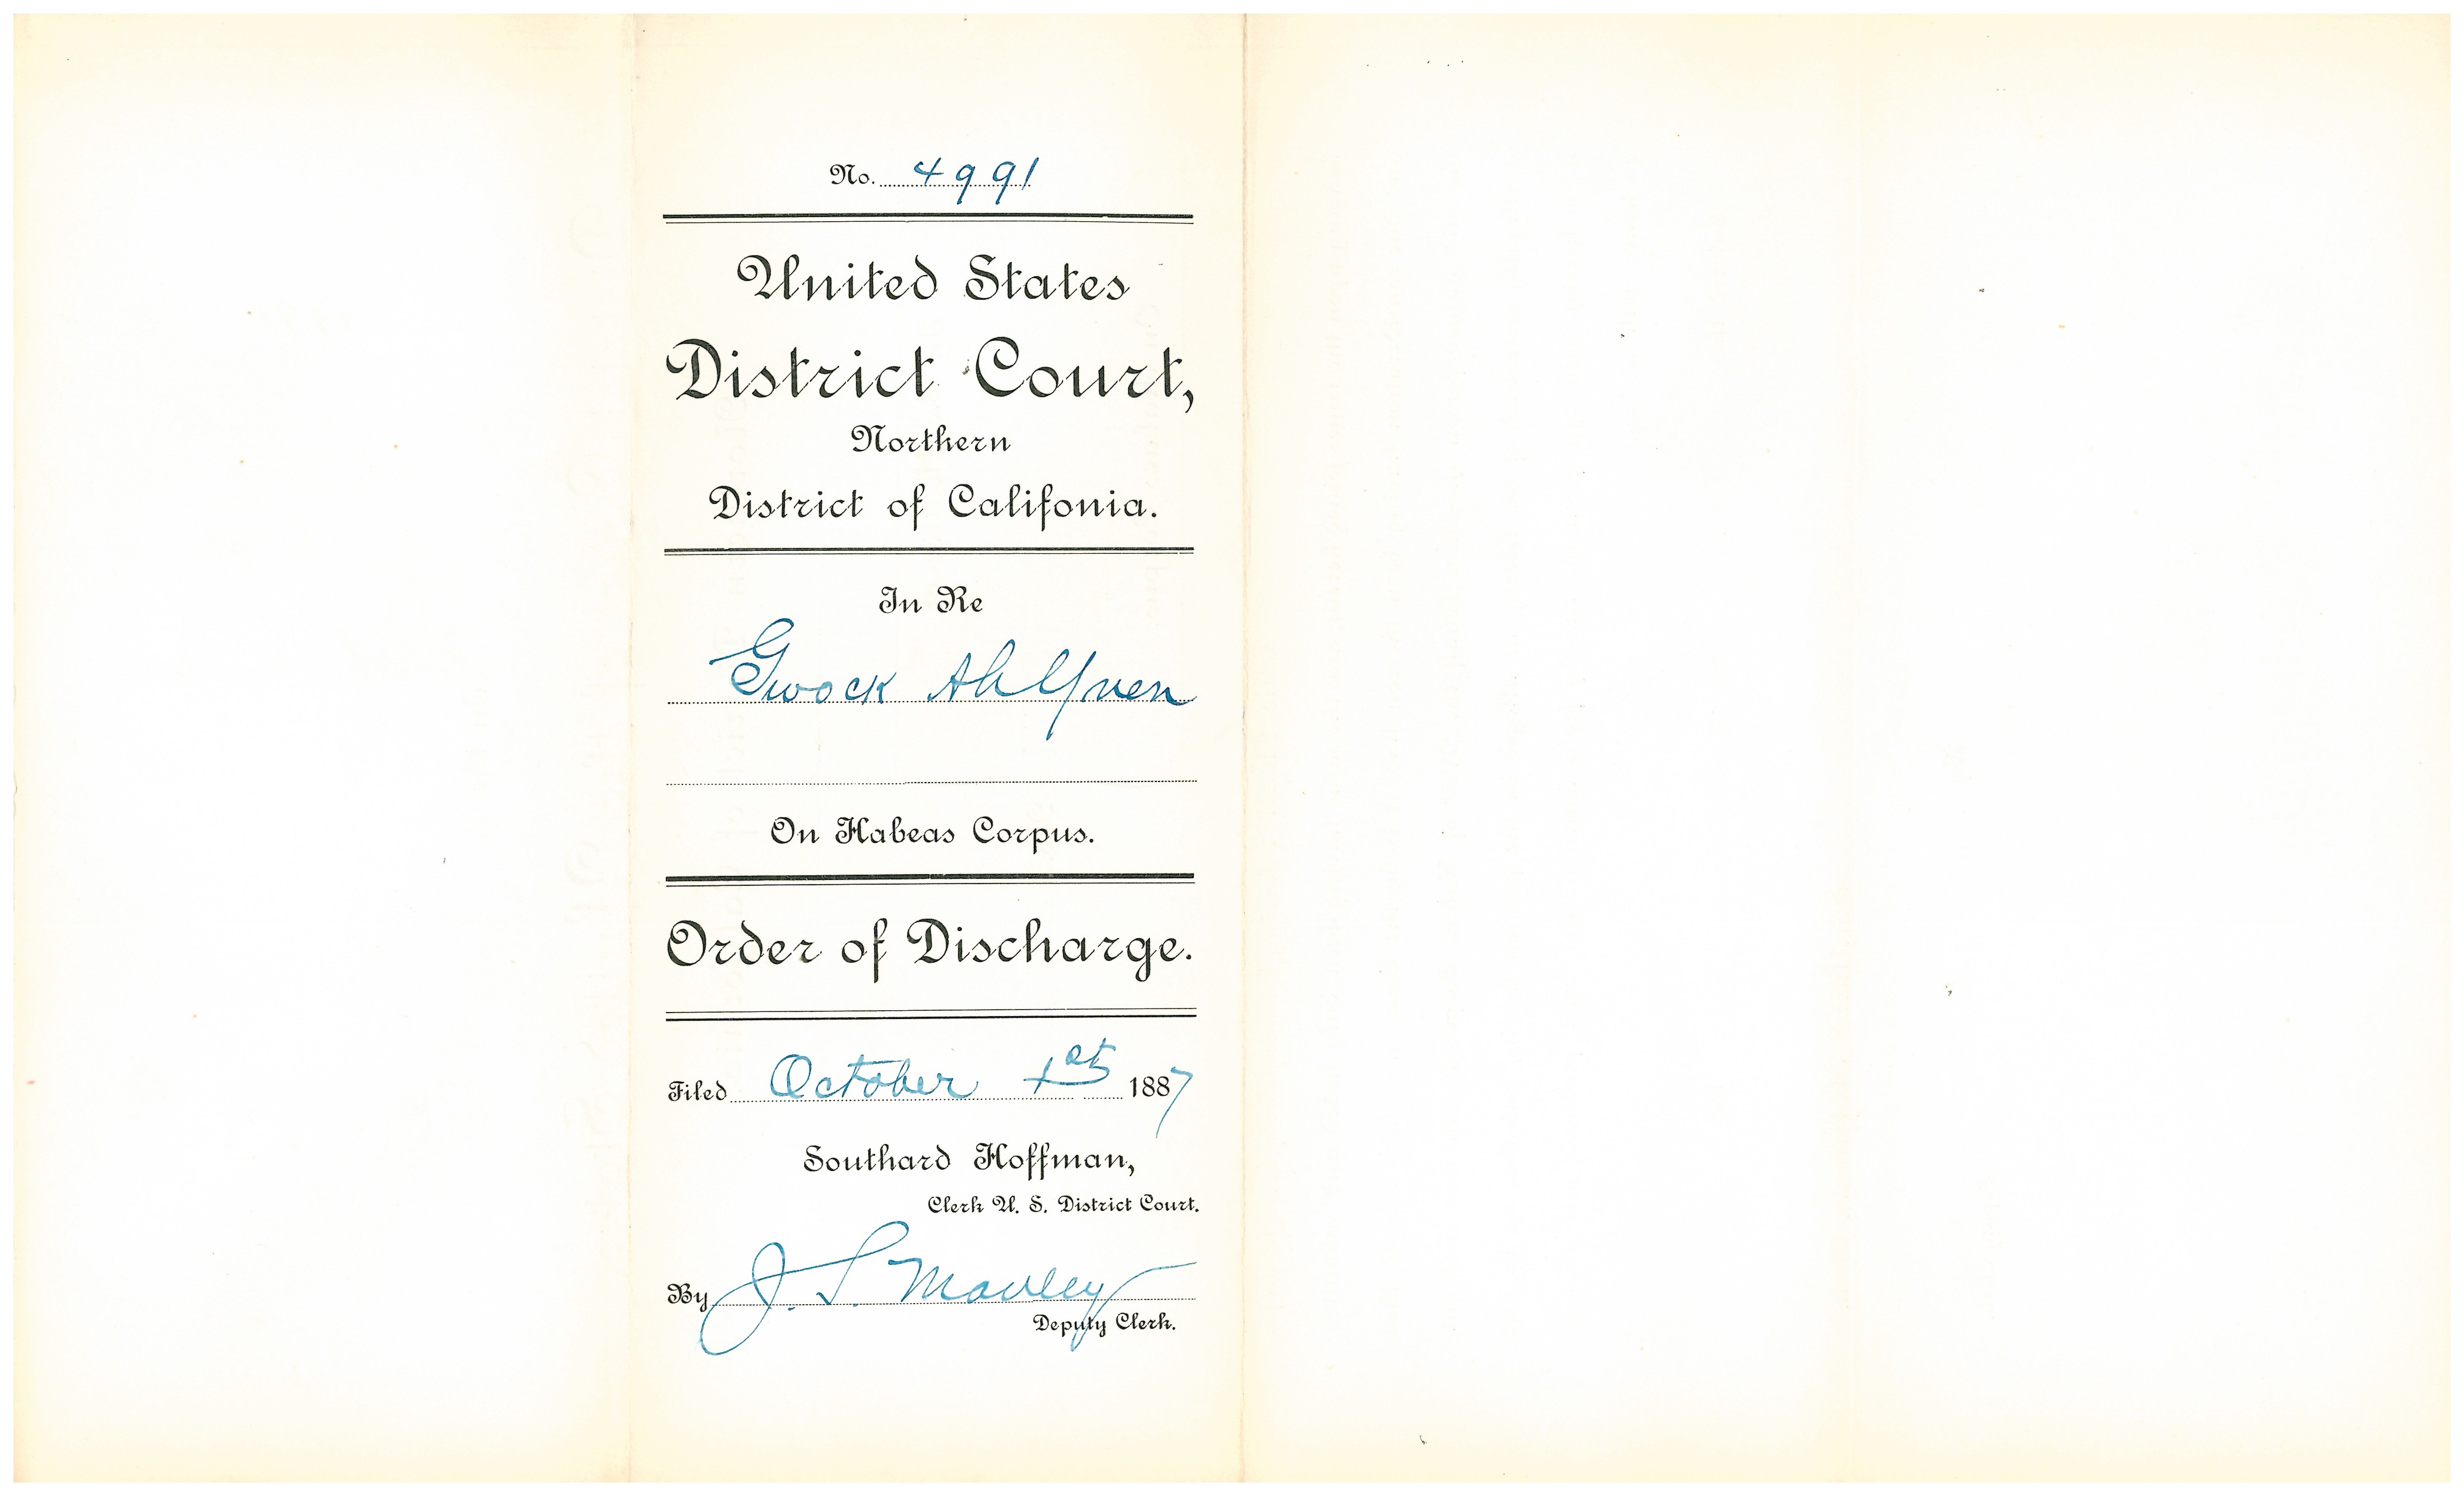 No. 4991
United States
District Court,
Northern
District of Califonia.
In Re
Gwock Ah Yuen
On Habeas Corpus.
Order of Discharge.
Filed October 1st 1887
Southard Hoffman,
Clerk U. S. District Court.
By J. S. Manley
Deputy Clerk.